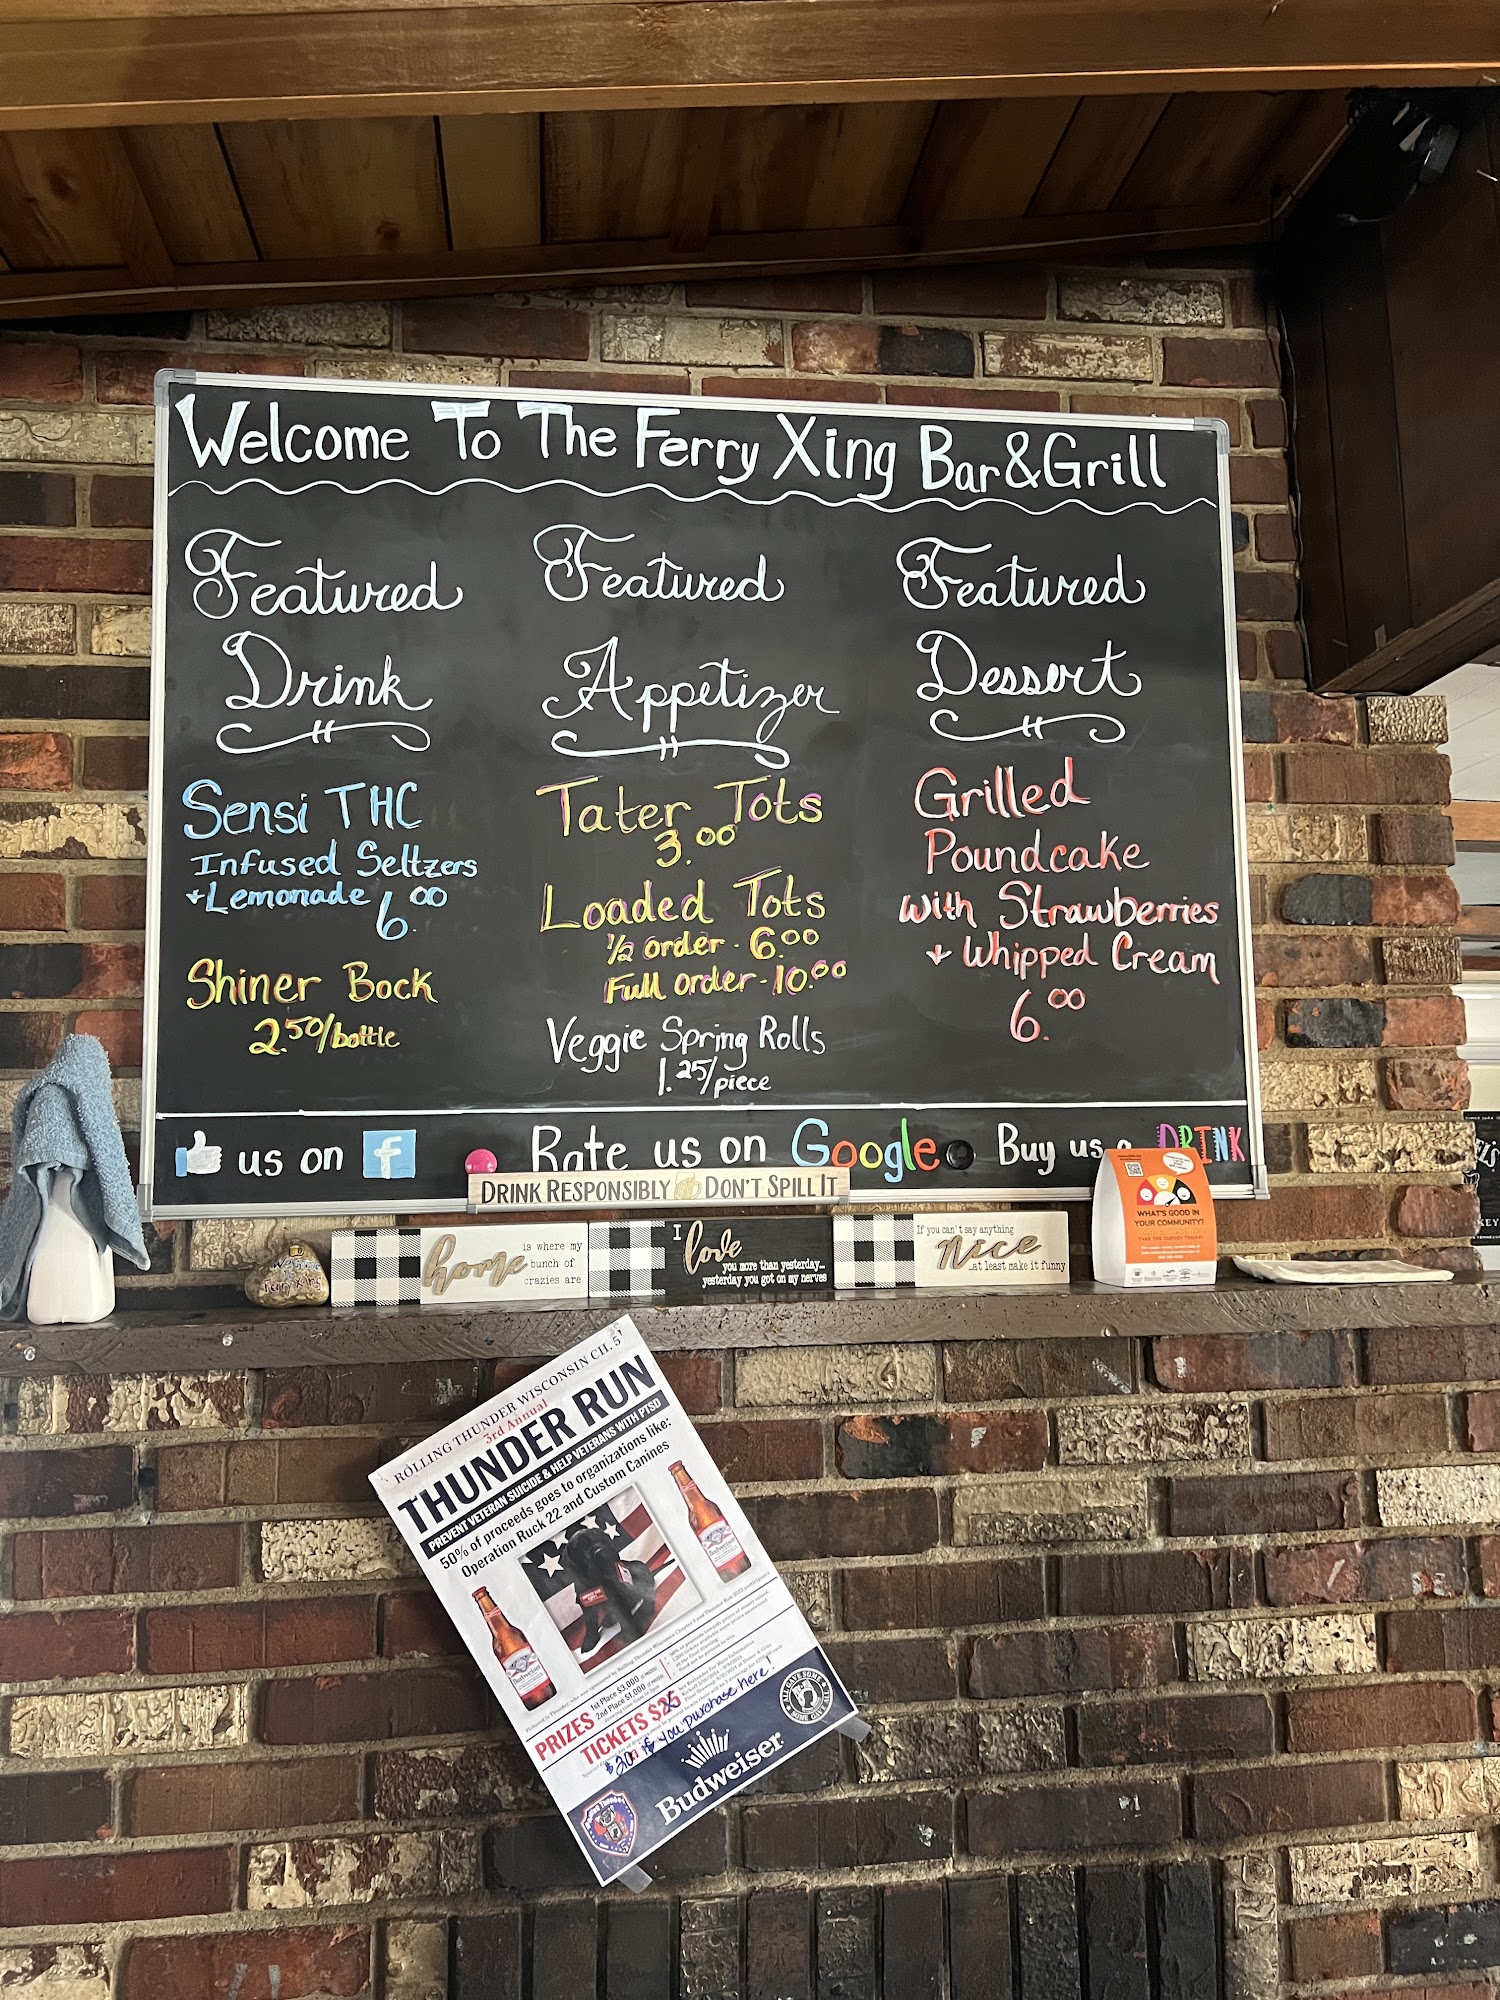 Welcome To The Ferry Xing Bar & Grill
Featured
Drink
Sensi THC
Infused Seltzers
+ Lemonade 6.00
Shiner Bock
2.50/bottle
Featured
Appetizer
Tater Tots
3.00
Loaded Tots
1/2 order - 6.00
Full order - 10.00
Veggie Spring Rolls
1.25/piece
Featured
Dessert
Grilled
Poundcake
with Strawberries
+ Whipped Cream
6.00
us on f
Rate us on Google
Buy us a DRINK
DRINK RESPONSIBLY DON'T SPILL IT
home
is where my
bunch of
crazies are
I love
you more than yesterday...
yesterday you got on my nerves
If you can't say anything
nice
...at least make it funny
WHAT'S GOOD IN
YOUR COMMUNITY?
TAKE THE SURVEY TODAY!
ROLLING THUNDER WISCONSIN CH. 5
3rd Annual
THUNDER RUN
PREVENT VETERAN SUICIDE & HELP VETERANS WITH PTSD
50% of proceeds goes to organizations like:
Operation Ruck 22 and Custom Canines
Budweiser
Budweiser
PRIZES
1st Place $3,000
2nd Place $1,000
TICKETS $25
$20 if you purchase here!
Budweiser